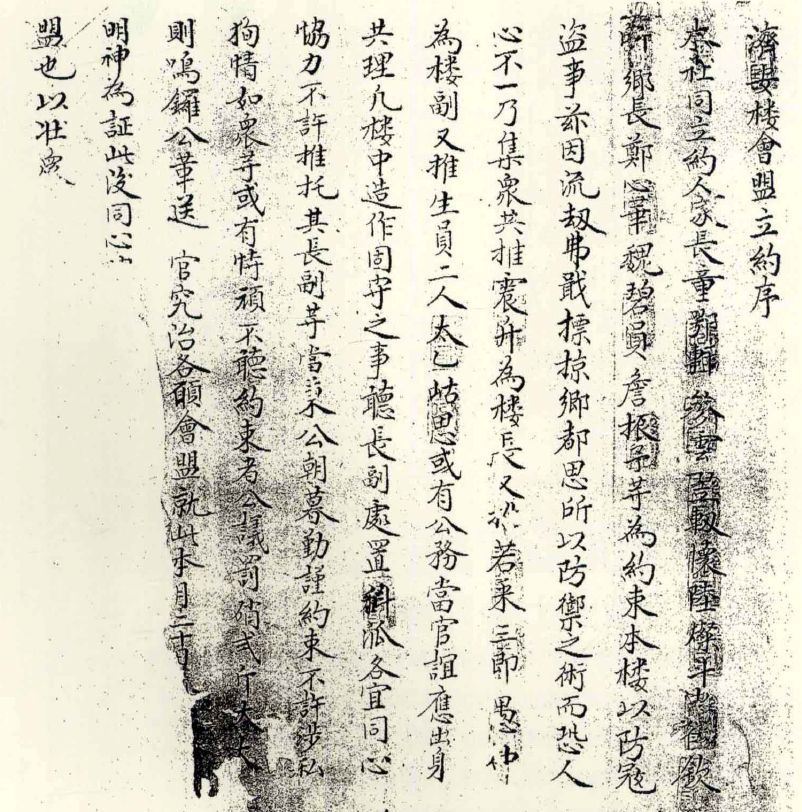 濟嬰楼會盟立約序
本社同立約人家長童 雲 懷陸 斗 欽
鄉長鄭心 魏碧員詹振 等為約束本楼以防冠
盗事茲因流刼弗戢摽掠鄉都思所以防禦之術而恐人
心不一乃集衆共推震升為楼長又 若来三郎愚
為楼副又推生員二人太乙岵思或有公務當官誼應出身
共理凢楼中造作固守之事聽長副處置 派各宜同心
恊力不許推托其長副等當秉公朝暮勤謹約束不許涉私
狥情如衆等或有恃頑不聽約束者公議罰硝弍斤大
則鳴鑼公革送 官究治各願會盟就此本月二十
明神為証此後同心
盟也以壯